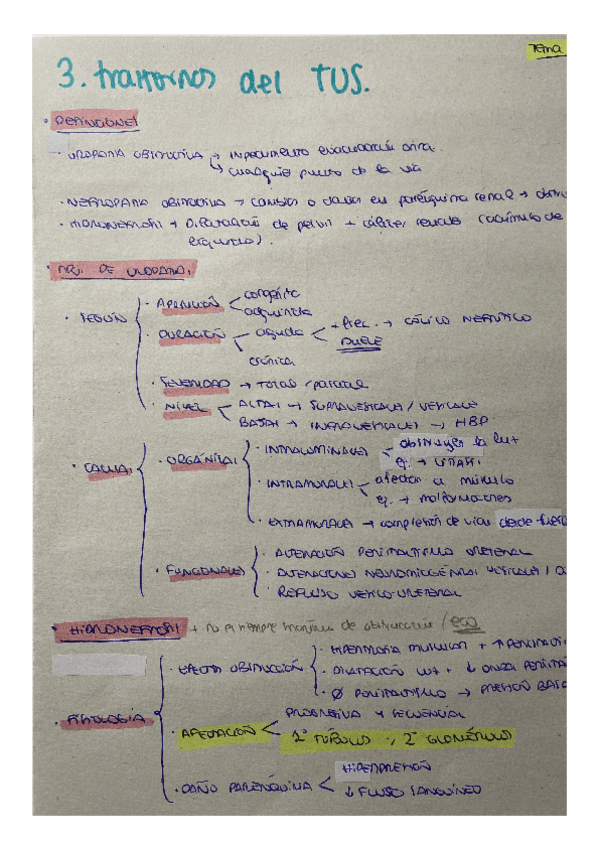 Tema
3. trastornos del TUS.
· DEFINICIONES
- UROPATIA OBSTRUCTIVA → IMPEDIMENTO evacuación orina.
↳ cualquier punto de la vía
· NEFROPATIA OBSTRUCTIVA → cambios o daños en parénquima renal →
· HIDRONEFROSIS → Dilatación de pelvis + cálices renales (acúmulo de
· DE UROPATIAS
· SEGÚN
· APARICIÓN
congénita
adquirida
· DURACIÓN
aguda
+ frec. → CÓLICO NEFRÍTICO
DUELE
crónica
· SEVERIDAD → TOTAL / parcial
· NIVEL
ALTAS → SUPRAVESICALES / VESICALES
BAJAS → INFRAVESICALES → HBP
· CAUSAS
· ORGÁNICAS
· INTRALUMINALES
obstruyen la luz
ej. → LITIASIS
· INTRAMURALES
afectan a músculo
ej. → malformaciones
· EXTRAMURALES → compresión de vías desde fuera
· FUNCIONALES
· ALTERACIÓN PERISTALTISMO URETERAL
· ALTERACIONES NEUROMIOGÉNICAS VESICALES /
· REFLUJO VESICO-URETERAL
· HIDRONEFROSIS → no siempre sinónimo de obstrucción / eco
· FISIOLOGÍA
· EFECTO OBSTRUCCIÓN
· HIPERTROFIA MUSCULAR + ↑
· DILATACIÓN LUZ + ↓ ONDA
· Ø PERISTALTISMO → PRESIÓN
· AFECTACIÓN
PROGRESIVA Y SECUENCIAL
1º TÚBULOS → 2º GLOMÉRULOS
· DAÑO PARÉNQUIMA
HIPERPRESIÓN
↓ FLUJO SANGUÍNEO